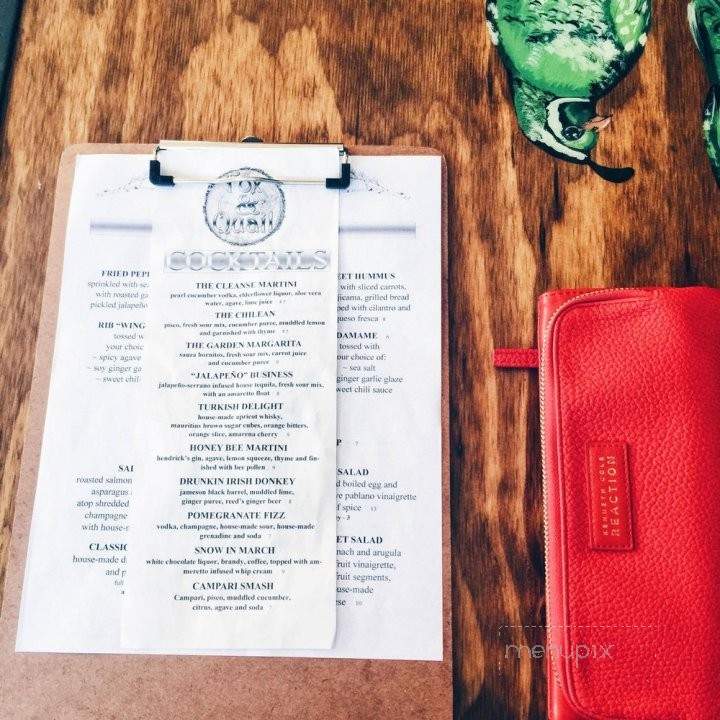 Fox
&
Quail
COCKTAILS
THE CLEANSE MARTINI
pearl cucumber vodka, elderflower liquor, aloe vera
water, agave, lime juice
THE CHILEAN
pisco, fresh sour mix, cucumber puree, muddled lemon
and garnished with thyme
THE GARDEN MARGARITA
sauza hornitos, fresh sour mix, carrot juice
and cucumber puree
"JALAPEÑO" BUSINESS
jalapeño-serrano infused house tequila, fresh sour mix,
with an amaretto float
TURKISH DELIGHT
house-made apricot whisky,
mauritius brown sugar cubes, orange bitters,
orange slice, amarena cherry
HONEY BEE MARTINI
hendrick's gin, agave, lemon squeeze, thyme and fin-
ished with bee pollen
DRUNKIN IRISH DONKEY
jameson black barrel, muddled lime,
ginger puree, reed's ginger beer
POMEGRANATE FIZZ
vodka, champagne, house-made sour, house-made
grenadine and soda
SNOW IN MARCH
white chocolate liquor, brandy, coffee, topped with am-
meretto infused whip cream
CAMPARI SMASH
Campari, pisco, muddled cucumber,
citrus, agave and soda
FRIED PEP
sprinkled with se
with roasted ga
pickled jalapeño
RIB "WING
tossed w
your choic
~ spicy agave
~ soy ginger ga
~ sweet chil
SAL
roasted salmon
asparagus
atop shredded
champagne
with house-
CLASSIC
house-made d
and p
full
a
EET HUMMUS
with sliced carrots,
jicama, grilled bread
ped with cilantro and
queso fresca 8
DAMAME
tossed with
our choice of:
~ sea salt
inger garlic glaze
sweet chili sauce
P 7
SALAD
d boiled egg and
e pablano vinaigrette
f spice 13
ET SALAD
nach and arugula
fruit vinaigrette,
fruit segments,
use-made
se 10
KENNETH COLE
REACTION
menupix